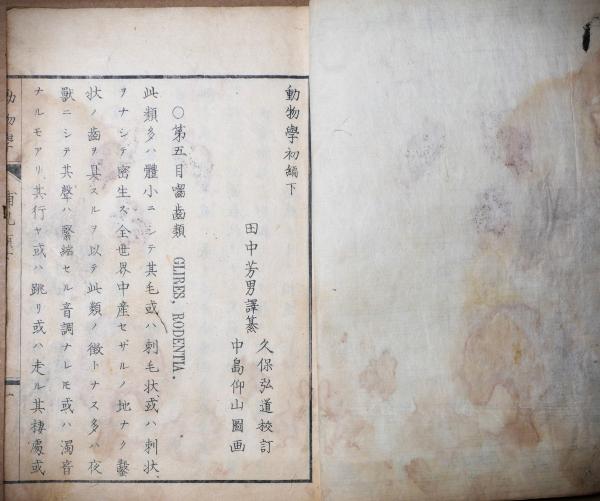 動物學初編下
田中芳男譯纂
久保弘道校訂
中島仰山圖画
○第五目囓齒類 GLIRES, RODENTIA.
此類多ハ體小ニシテ其毛或ハ刺毛状或ハ刺状
ヲナシテ密生ス全世界中産セザルノ地ナク鑿
状ノ齒ヲ具スルヲ以テ此類ノ徴トナス多ハ夜
獸ニシテ其聲ハ緊縮セル音調ナレモ或ハ濁音
ナルモアリ其行ヤ或ハ跳リ或ハ走ル其棲處或
動物學